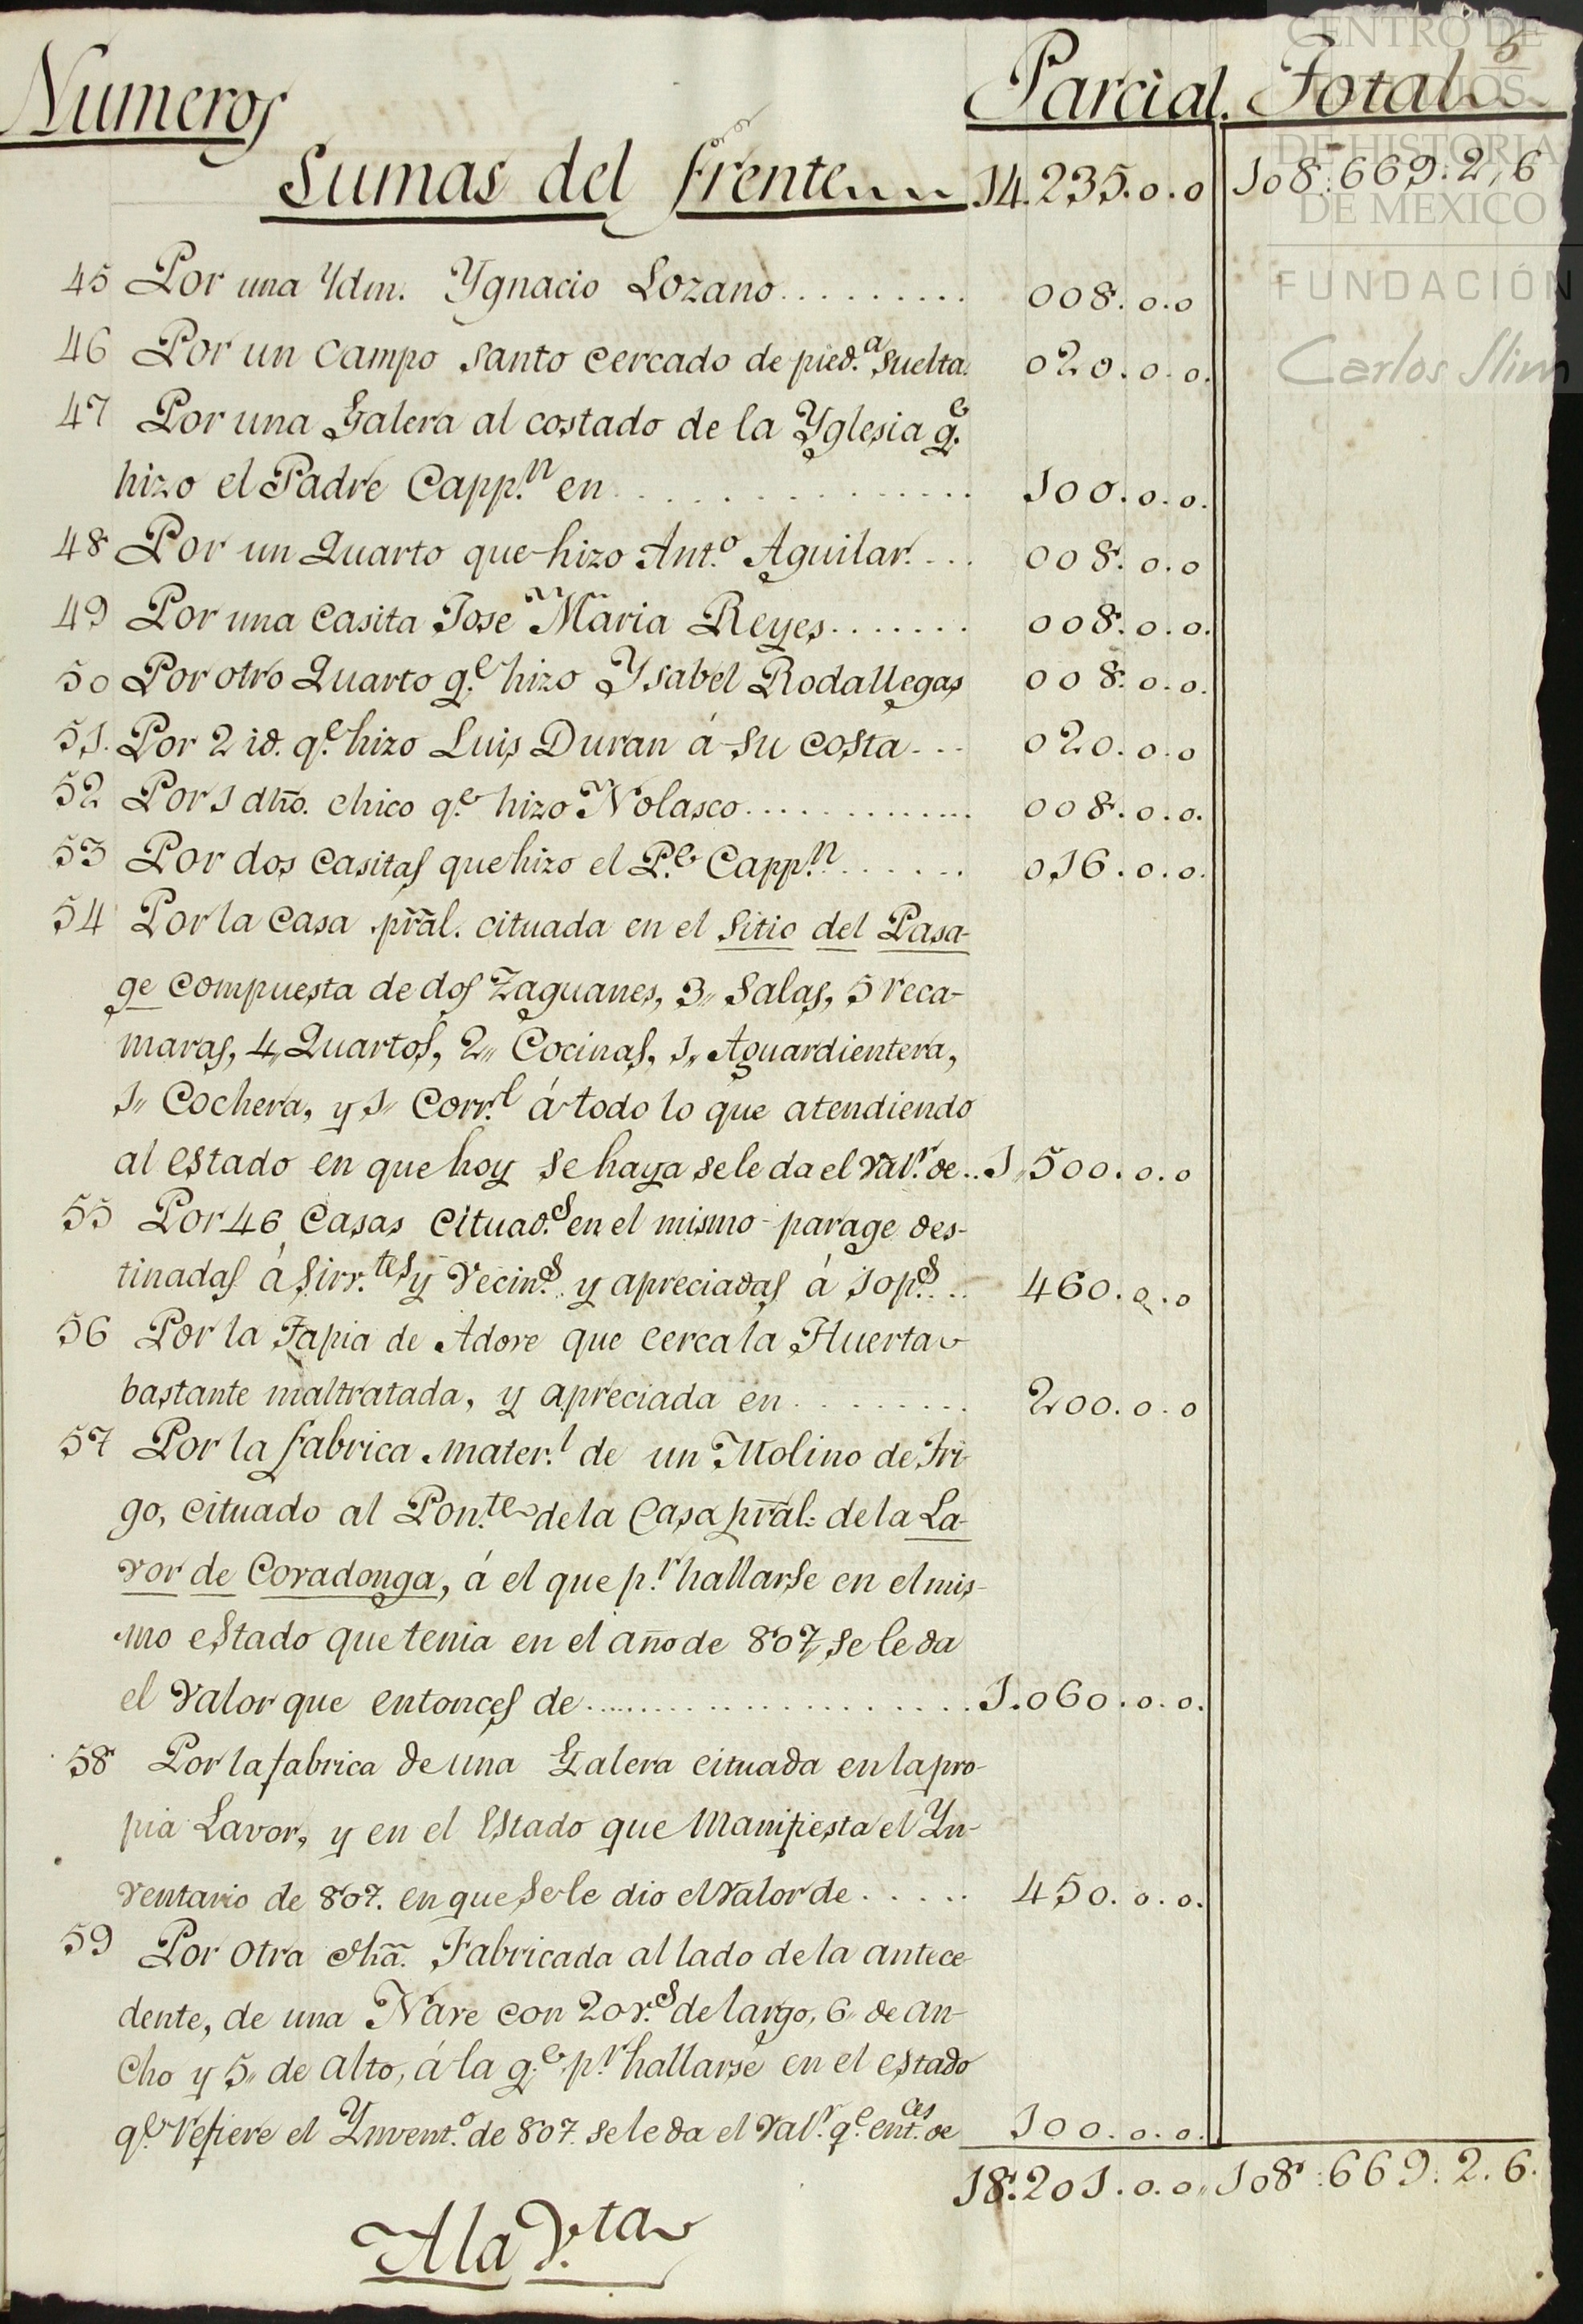 CENTRO DE
ESTUDIOS
DE HISTORIA
DE MEXICO
FUNDACIÓN
Carlos Slim
5
Numeros Parcial. Total
Sumas del frente 14.235.0.0 108.669.2,6
45 Por una Ydm. Ygnacio Lozano......... 008.0.0
46 Por un Campo Santo cercado de pied.ª Suelta. 020.0.0.
47 Por una Galera al costado de la Yglesia q.e
hizo el Padre Capp.n en............... 100.0.0.
48 Por un Quarto que hizo Ant.o Aguilar.... 008.0.0
49 Por una casita Jose Maria Reyes....... 008.0.0.
50 Por otro Quarto q.e hizo Ysabel Rodallegas 008.0.0.
51. Por 2 id. q.e hizo Luis Duran á su costa... 020.0.0
52 Por 1 dho. chico q.e hizo Nolasco............. 008.0.0.
53 Por dos casitas que hizo el P.e Capp.n...... 016.0.0.
54 Por la Casa pral. cituada en el Sitio del Pasa-
ge compuesta de dos Zaguanes, 3,, Salas, 5 reca-
maras, 4,, Quartos, 2,, Cocinas, 1,, Aguardientera,
1,, Cochera, y 1,, Corr.l á todo lo que atendiendo
al estado en que hoy se haya se le da el val.r de.. 1,500.0.0
55 Por 46 Casas cituad.s en el mismo parage des-
tinadas á sirv.tes y vecin.s y apreciadas á 10 p.s... 460.0.0
56 Por la Tapia de Adove que cerca la Huerta
bastante maltratada, y apreciada en......... 200.0.0
57 Por la fabrica mater.l de un Molino de Tri-
go, cituado al Pon.te de la Casa pral. de la La-
vor de Covadonga, á el que p.r hallarse en el mis-
mo estado que tenia en el año de 807,, se le da
el valor que entonces de.................... 1.060.0.0.
58 Por la fabrica de una Galera cituada en la pro-
pia Lavor, y en el Estado que Manifiesta el Yn-
ventario de 807. en que se le dio el valor de..... 450.0.0.
59 Por otra dha. Fabricada al lado de la antece-
dente, de una Nave con 20 v.s de largo, 6,, de an-
cho y 5,, de alto, á la q.e p.r hallarse en el estado
q.e refiere el Ynvent.o de 807. se le da el val.r q.e ent.ces de 100.0.0.
18.201.0.0,, 108.669.2.6.
A la V.ta